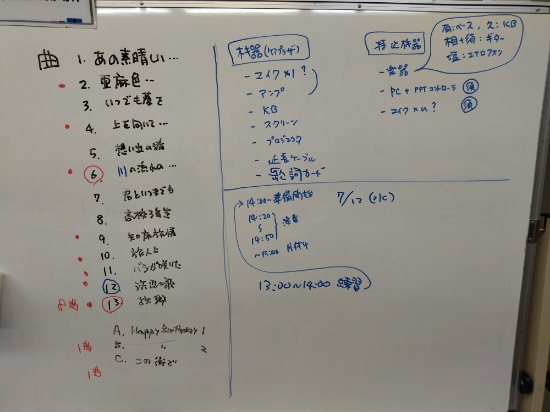 曲
1. あの素晴しい...
2. 亜麻色...
3. いつでも夢を
4. 上を向いて...
5. 想い出の渚
6. 川の流れの...
7. 君といつまでも
8. 高校三年生
9. 知床旅情
10. 旅人よ
11. バラが咲いた
12
13
A. Happy Birthday 1
B. 〃 2
C. この街で
1番
1番
機器(ケアプラザ)
- マイク×1?
- アンプ
- KB
- スクリーン
- プロジェクタ
- 延長ケーブル
- 歌詞カード
持込機器
- 楽器
- PC + PPTコントローラ
- マイク×n?
ベース, KB
ギター
14:00~準備開始
14:20
14:50
演奏
~15:00 片付け
7/12 (水)
13:00~14:00 練習